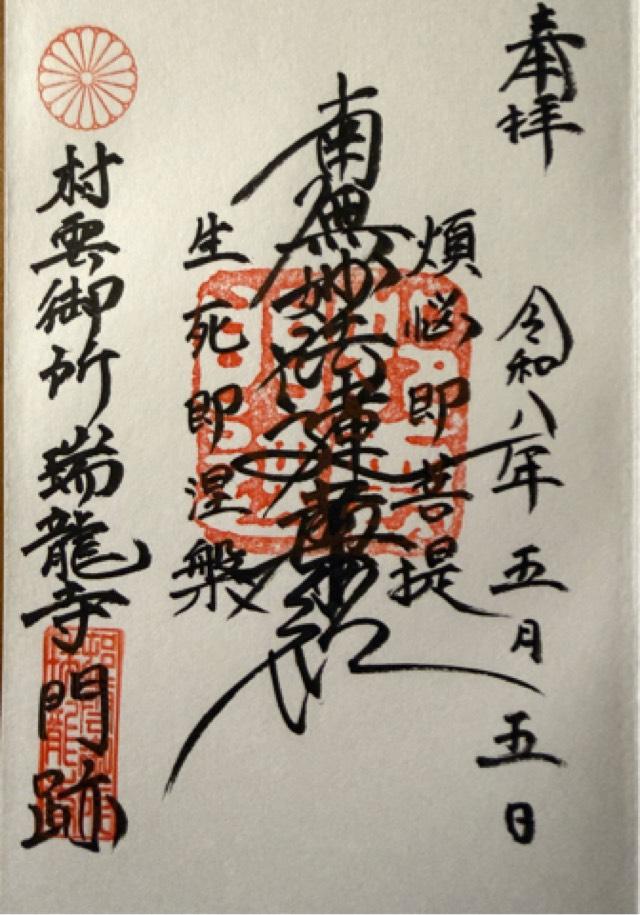 奉拝
令和八年五月五日
煩悩即菩提
南無妙法蓮華経
生死即涅槃
村雲御所瑞龍寺門跡